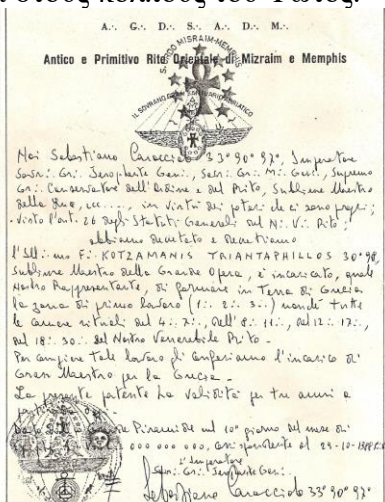 στους κόλπους του Φωτός.
A∴ G∴ D∴ S∴ A∴ D∴ M∴
S. RITO MISRAIM-MEMPHIS
Antico e Primitivo Rito Orientale di Mizraim e Memphis
IL SOVRANO GRAN SANTUARIO ADRIATICO
Noi Sebastiano Caracciolo 33° 90° 97°, Imperatore
Sovr∴ Gr∴ Jerophante Gen∴, Sovr∴ Gr∴ M∴ Gen∴, Supremo
Gr∴ Conservatore dell'Ordine e del Rito, Sublime Maestro
della Gna, ecc...., in virtù dei poteri che ci sono propri;
visto l'art. 26 degli Statuti Generali del N∴ V∴ Rito:
abbiamo decretato e decretiamo
l'Ill∴mo F∴ KOTZAMANIS TRIANTAPHILLOS 30°90,
Sublime Maestro della Grande Opera, è incaricato, quale
Nostro Rappresentante, di formare in Terra di Grecia
la zona di primo lavoro (1∴ 2∴ 3∴) nonché tutte
le camere rituali del 4∴ 7∴, dell'8∴ 11∴, del 12∴ 17∴,
del 18∴ 30∴ del Nostro Venerabile Rito.
Per compiere tale lavoro gli conferiamo l'incarico di
Gran Maestro per la Grecia.
La presente patente ha validità per tre anni a
Piramide nel 10° giorno del mese di
000 000 000, corrispondente al 29-10-
l'Imperatore
Sovr∴ Gr∴ Jerophante Gen∴
Sebastiano Caracciolo 33° 90° 97°